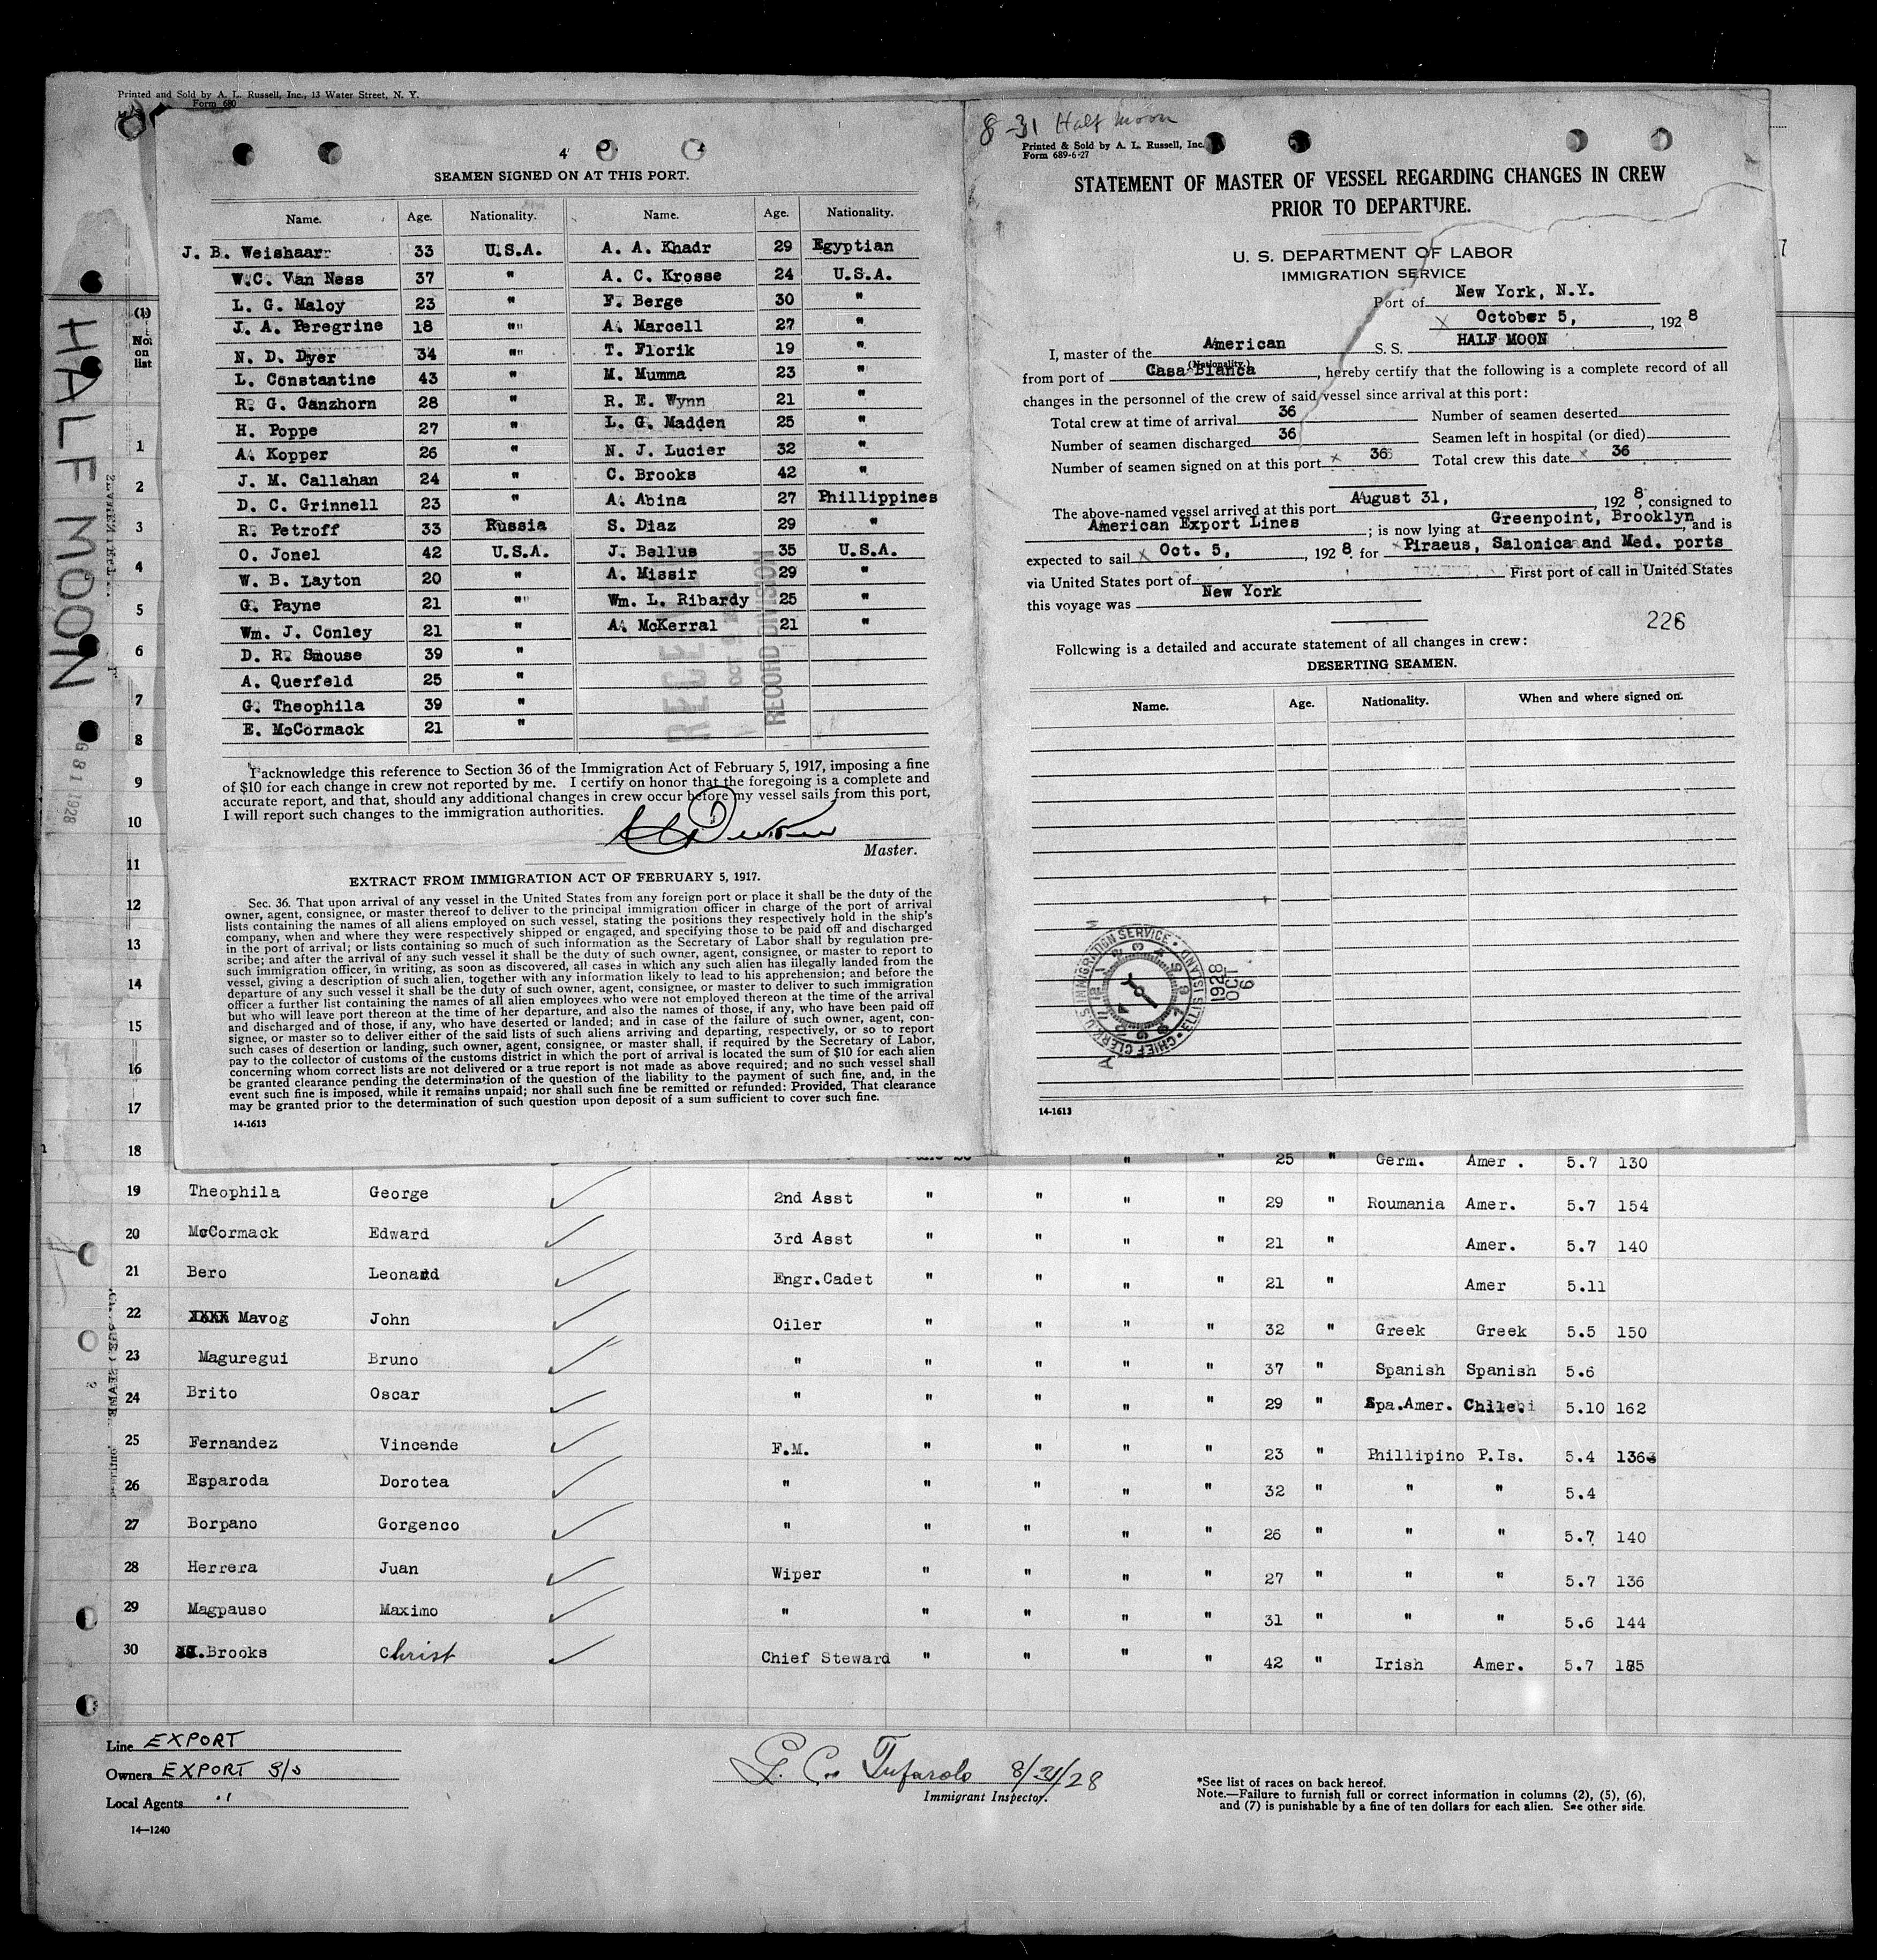 Printed and Sold by A. L. Russell, Inc., 13 Water Street, N. Y.
Form 680
HALF MOON
(1)
No.
on
list
4
SEAMEN SIGNED ON AT THIS PORT.
Name. Age. Nationality. Name. Age. Nationality.
J. B. Weishaar 33 U.S.A. A. A. Khadr 29 Egyptian
W.C. Van Ness 37 " A. C. Krosse 24 U.S.A.
L. G. Maloy 23 " F. Berge 30 "
J. A. Peregrine 18 " A. Marcell 27 "
N. D. Dyer 34 " T. Florik 19 "
L. Constantine 43 " M. Mumma 23 "
R. G. Ganzhorn 28 " R. E. Wynn 21 "
H. Poppe 27 " L. G. Madden 25 "
A. Kopper 26 " N. J. Lucier 32 "
J. M. Callahan 24 " C. Brooks 42 "
D. C. Grinnell 23 " A. Abina 27 Phillippines
R. Petroff 33 Russia S. Diaz 29 "
O. Jonel 42 U.S.A. J. Bellus 35 U.S.A.
W. B. Layton 20 " A. Missir 29 "
G. Payne 21 " Wm. L. Ribardy 25 "
Wm. J. Conley 21 " A. McKerral 21 "
D. R. Smouse 39 "
A. Querfeld 25 "
G. Theophila 39 "
E. McCormack 21 "
RECORD DIVISION
I acknowledge this reference to Section 36 of the Immigration Act of February 5, 1917, imposing a fine
of $10 for each change in crew not reported by me. I certify on honor that the foregoing is a complete and
accurate report, and that, should any additional changes in crew occur before my vessel sails from this port,
I will report such changes to the immigration authorities.
Master.
EXTRACT FROM IMMIGRATION ACT OF FEBRUARY 5, 1917.
Sec. 36. That upon arrival of any vessel in the United States from any foreign port or place it shall be the duty of the
owner, agent, consignee, or master thereof to deliver to the principal immigration officer in charge of the port of arrival
lists containing the names of all aliens employed on such vessel, stating the positions they respectively hold in the ship's
company, when and where they were respectively shipped or engaged, and specifying those to be paid off and discharged
in the port of arrival; or lists containing so much of such information as the Secretary of Labor shall by regulation pre-
scribe; and after the arrival of any such vessel it shall be the duty of such owner, agent, consignee, or master to report to
such immigration officer, in writing, as soon as discovered, all cases in which any such alien has illegally landed from the
vessel, giving a description of such alien, together with any information likely to lead to his apprehension; and before the
departure of any such vessel it shall be the duty of such owner, agent, consignee, or master to deliver to such immigration
officer a further list containing the names of all alien employees who were not employed thereon at the time of the arrival
but who will leave port thereon at the time of her departure, and also the names of those, if any, who have been paid off
and discharged and of those, if any, who have deserted or landed; and in case of the failure of such owner, agent, con-
signee, or master so to deliver either of the said lists of such aliens arriving and departing, respectively, or so to report
such cases of desertion or landing, such owner, agent, consignee, or master shall, if required by the Secretary of Labor,
pay to the collector of customs of the customs district in which the port of arrival is located the sum of $10 for each alien
concerning whom correct lists are not delivered or a true report is not made as above required; and no such vessel shall
be granted clearance pending the determination of the question of the liability to the payment of such fine, and, in the
event such fine is imposed, while it remains unpaid; nor shall such fine be remitted or refunded: Provided, That clearance
may be granted prior to the determination of such question upon deposit of a sum sufficient to cover such fine.
14-1613
8-31 Half Moon
Printed & Sold by A. L. Russell, Inc.
Form 689-6-27
STATEMENT OF MASTER OF VESSEL REGARDING CHANGES IN CREW
PRIOR TO DEPARTURE.
U. S. DEPARTMENT OF LABOR
IMMIGRATION SERVICE
Port of New York, N.Y.
X October 5, , 192 8
I, master of the American S. S. HALF MOON
(Nationality.)
from port of Casa Blanca , hereby certify that the following is a complete record of all
changes in the personnel of the crew of said vessel since arrival at this port:
Total crew at time of arrival 36 Number of seamen deserted
Number of seamen discharged 36 Seamen left in hospital (or died)
Number of seamen signed on at this port X 36 Total crew this date X 36
The above-named vessel arrived at this port August 31, , 192 8, consigned to
American Export Lines ; is now lying at Greenpoint, Brooklyn and is
expected to sail X Oct. 5, , 192 8 for X Piraeus, Salonica and Med. ports
via United States port of First port of call in United States
this voyage was New York
226
Following is a detailed and accurate statement of all changes in crew:
DESERTING SEAMEN.
Name. Age. Nationality. When and where signed on.
CHIEF CLERK U.S. IMMIGRATION SERVICE • ELLIS ISLAND
1928
OCT
6
14-1613
1
2
3
4
5
6
7
8
9
10
11
12
13
14
15
16
17
18 " " 25 " Germ. Amer . 5.7 130
19 Theophila George 2nd Asst " " " " 29 " Roumania Amer. 5.7 154
20 McCormack Edward 3rd Asst " " " " 21 " Amer. 5.7 140
21 Bero Leonard Engr.Cadet " " " " 21 " Amer 5.11
22 XXXX Mavog John Oiler " " " " 32 " Greek Greek 5.5 150
23 Maguregui Bruno " " " " " 37 " Spanish Spanish 5.6
24 Brito Oscar " " " " " 29 " Spa.Amer. Chile. 5.10 162
25 Fernandez Vincende F.M. " " " " 23 " Phillipino P.Is. 5.4 136
26 Esparoda Dorotea " " " " " 32 " " " 5.4
27 Borpano Gorgenco " " " " " 26 " " " 5.7 140
28 Herrera Juan Wiper " " " " 27 " " " 5.7 136
29 Magpauso Maximo " " " " " 31 " " " 5.6 144
30 Brooks Christ Chief Steward " " " " 42 " Irish Amer. 5.7 185
Line EXPORT
Owners EXPORT S/S
Local Agents "
14—1240
G. C. Tufarolo 8/31/28
Immigrant Inspector.
*See list of races on back hereof.
Note.—Failure to furnish full or correct information in columns (2), (5), (6),
and (7) is punishable by a fine of ten dollars for each alien. See other side.